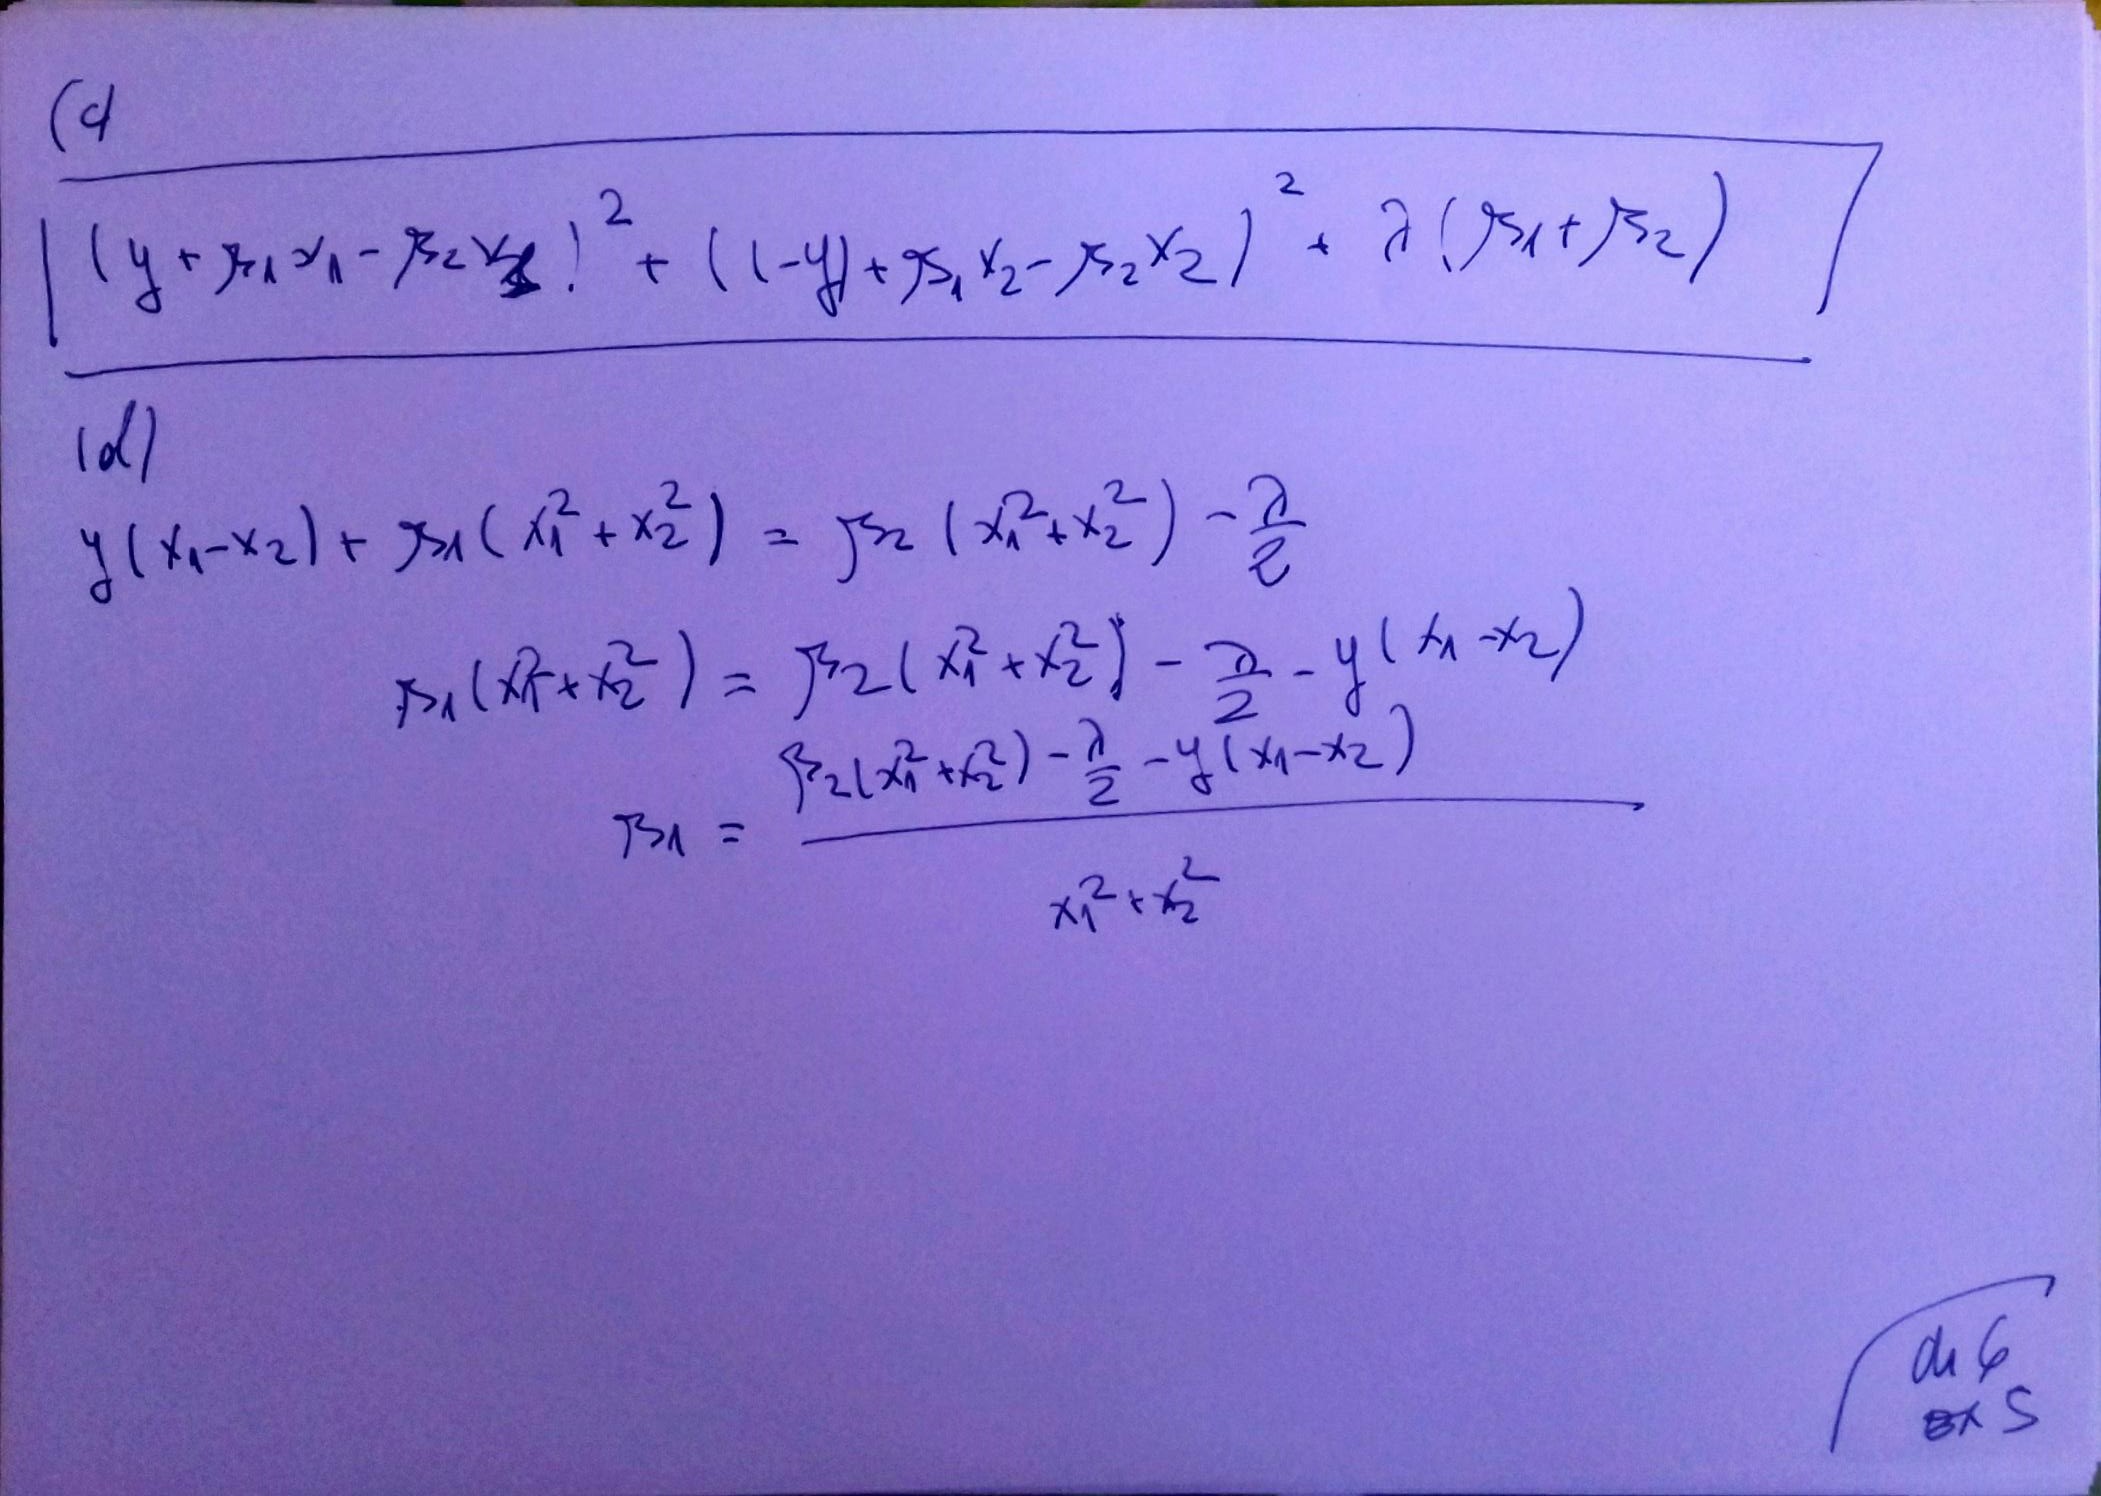 (c)
(y + β₁x₁ - β₂x₁)² + ((-y) + β₁x₂ - β₂x₂)² + λ(β₁ + β₂)
(d)
y(x₁-x₂) + β₁(x₁² + x₂²) = β₂(x₁² + x₂²) - λ/2
β₁(x₁² + x₂²) = β₂(x₁² + x₂²) - λ/2 - y(x₁-x₂)
β₁ = (β₂(x₁² + x₂²) - λ/2 - y(x₁-x₂)) / (x₁² + x₂²)
ch 6
ex 5